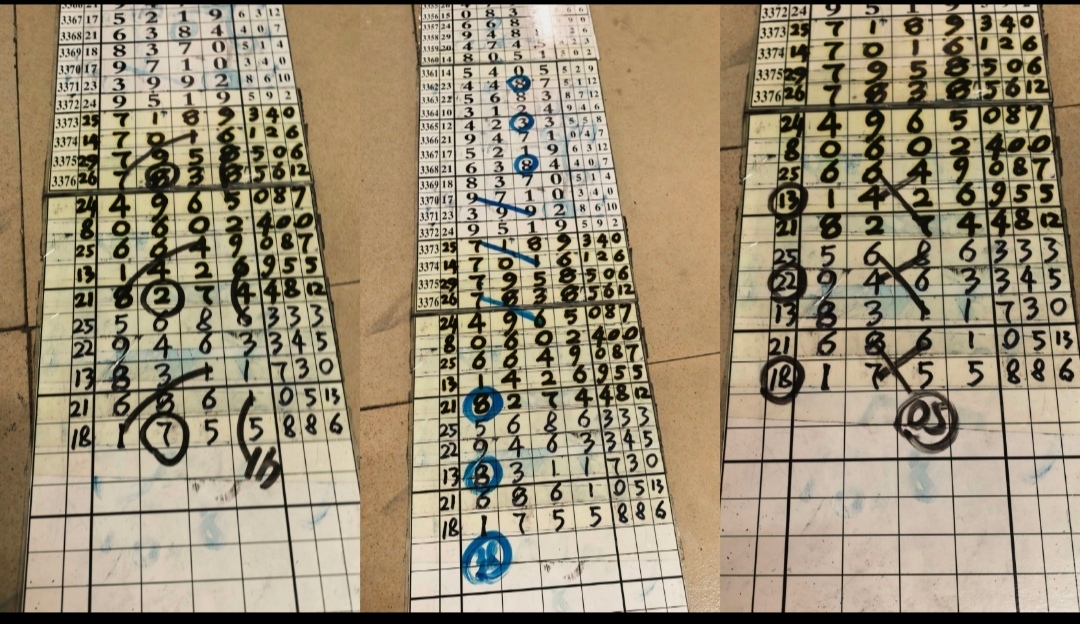 3367 15 5 2 1 9 6 3 12
3368 21 6 3 8 4 4 0 7
3369 18 8 3 7 0 5 1 4
3370 17 9 7 1 0 3 4 0
3371 23 3 9 9 2 8 6 10
3372 24 9 5 1 9 5 9 2
3373 25 7 1 8 9 3 4 0
3374 14 7 0 1 6 1 2 6
3375 29 7 9 5 8 5 0 6
3376 26 7 8 3 8 5 6 12
24 4 9 6 5 0 8 7
8 0 6 0 2 4 0 0
25 6 6 4 9 0 8 7
13 1 4 2 6 9 5 5
21 8 2 7 4 4 8 12
25 5 6 8 6 3 3 3
22 9 4 6 3 3 4 5
13 8 3 1 1 7 3 0
21 6 8 6 1 0 5 13
18 1 7 5 5 8 8 6
3361 14 5 4 0 5 5 2 9
3362 23 4 4 8 7 5 1 12
3363 22 5 6 8 3 8 7 12
3364 10 3 1 2 4 9 4 6
3365 12 4 2 3 3 5 5 8
3366 21 9 4 7 1 0 4 7
3367 17 5 2 1 9 6 3 12
3368 21 6 3 8 4 4 0 7
3369 18 8 3 7 0 5 1 4
3370 17 9 7 1 0 3 4 0
3371 23 3 9 9 2 8 6 10
3372 24 9 5 1 9 5 9 2
3373 25 7 1 8 9 3 4 0
3374 14 7 0 1 6 1 2 6
3375 29 7 9 5 8 5 0 6
3376 26 7 8 3 8 5 6 12
24 4 9 6 5 0 8 7
8 0 6 0 2 4 0 0
25 6 6 4 9 0 8 7
13 1 4 2 6 9 5 5
21 8 2 7 4 4 8 12
25 5 6 8 6 3 3 3
22 9 4 6 3 3 4 5
13 8 3 1 1 7 3 0
21 6 8 6 1 0 5 13
18 1 7 5 5 8 8 6
3372 24 9 5 1 9
3373 25 7 1 8 9 3 4 0
3374 14 7 0 1 6 1 2 6
3375 29 7 9 5 8 5 0 6
3376 26 7 8 3 8 5 6 12
24 4 9 6 5 0 8 7
8 0 6 0 2 4 0 0
25 6 6 4 9 0 8 7
13 1 4 2 6 9 5 5
21 8 2 7 4 4 8 12
25 5 6 8 6 3 3 3
22 9 4 6 3 3 4 5
13 8 3 1 1 7 3 0
21 6 8 6 1 0 5 13
18 1 7 5 5 8 8 6
05